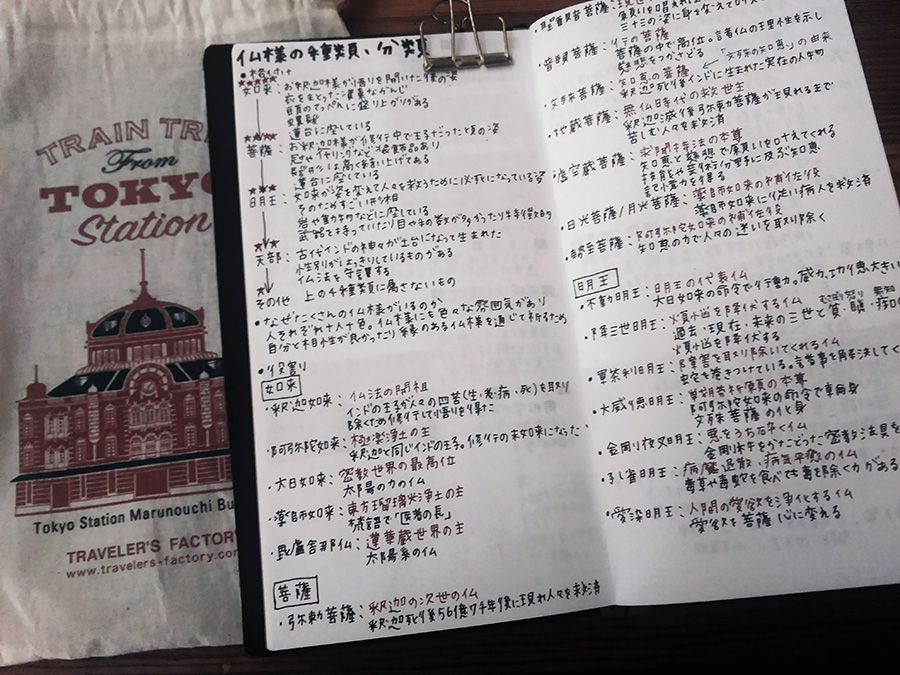 TRAIN TR
From
TOKYO
Station
Tokyo Station Marunouchi Bu
TRAVELER'S FACTORY
www.travelers-factory.com
仏様の種類、分類
●格付け
★★★★★
如来：お釈迦様が悟りを開いた後の姿
衣をまとった質素なかんじ
頭のてっぺんに盛り上がりがある
蓮台に座している
★★★★
菩薩：お釈迦様が修行中で王子だった頃の姿
冠やイヤリングなど装飾品あり
髪の毛は高く結い上げてある
蓮台に座している
★★★
明王：如来が姿を変えて人々を救うために必死になっている姿
そのためすごい形相
岩や動物などに座している
武器を持っていたり目や手の数が多かったり
★★
天部：古代インドの神々が土台になって生まれた
性別がはっきりしているものがある
仏法を守護する
★
その他 上の4種類に属さないもの
●なぜたくさんの仏様がいるのか
人それぞれ十人十色。仏様にも色々な雰囲気があり
自分と相性が良かったり縁のある仏様を通じて祈るため
●役割り
如来
・釈迦如来：仏法の開祖
インドの王子が人々の四苦(生・老・病・死)を取り
除くため修行して悟りを得た
・阿弥陀如来：極楽浄土の主
釈迦と同じインドの王子。修行の末如来になった
・大日如来：密教世界の最高位
太陽の力の仏
・薬師如来：東方瑠璃光浄土の主
梵語で「医者の長」
・毘盧舎那仏：蓮華蔵世界の主
太陽系の仏
菩薩
・弥勒菩薩：釈迦の次世の仏
釈迦死後56億7千年後に現れ人々を救済
・聖観音菩薩：現世
願いを唱えれ
三十三の姿に身を変えて
・普賢菩薩：行の菩薩
菩薩の中で高位。諸仏の王
慈悲をつかさどる
・文殊菩薩：知恵の菩薩 「文殊の知恵」の由来
釈迦死後インドに生まれた実在の人物
・地蔵菩薩：無仏時代の救世主
釈迦滅後弥勒菩薩が現れるまで
苦しむ人々を救済
・虚空蔵菩薩：求聞持法の本尊
知恵と慈悲で願いを叶えてくれる
技能や芸術分野に及ぶ知恵
記憶力を得る
・日光菩薩/月光菩薩：薬師如来の補佐役
薬師如来に従い病人を救済
・勢至菩薩：阿弥陀如来の補佐役
知恵の力で人々の迷いを取り除く
明王
・不動明王：明王の代表仏
大日如来の命令で行動。威力、功徳大きい
・降三世明王：煩悩を降伏する仏
過去・現在・未来の三世と貪・瞋・痴の
煩悩を降伏する
・軍荼利明王：障害を取り除いてくれる仏
蛇を巻きつけている。諸事を解決してく
・大威徳明王：
阿弥陀如来の命令で東面身
文殊菩薩の化身
・金剛夜叉明王：悪をうち砕く仏
金剛杵をかたどった密教法具を
・孔雀明王：病魔退散・病気平癒の仏
毒草や毒蛇を食べても毒を除く力がある
・愛染明王：人間の愛欲を浄化する仏
愛欲を菩薩心に変える